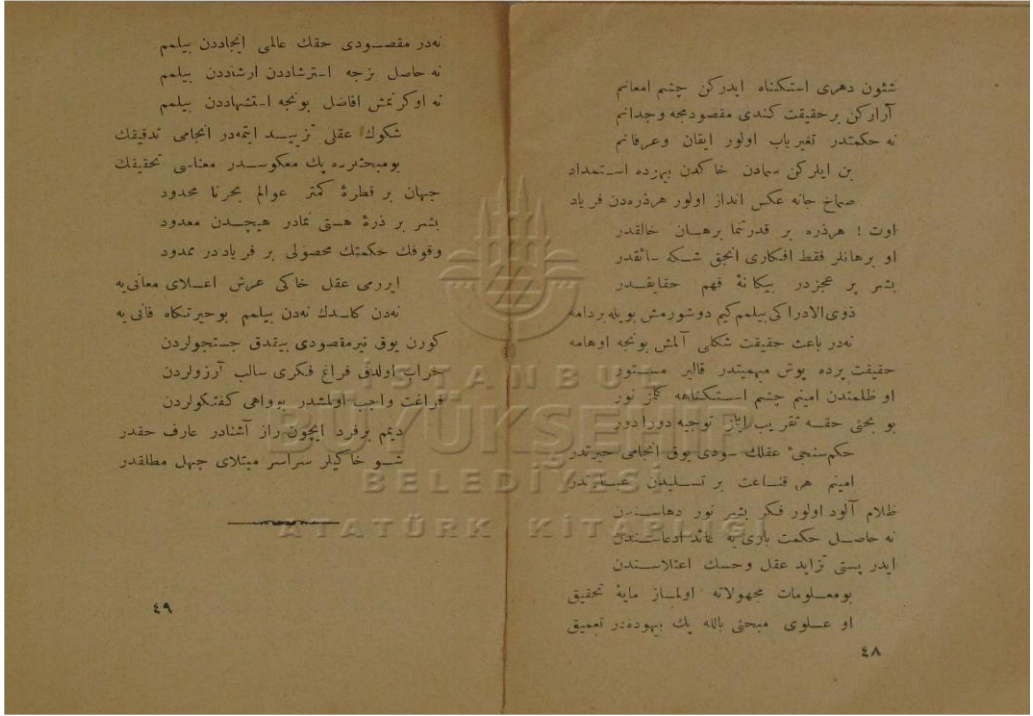 شئون دهری استكناه ایدركن چشم امعانم
آراركن برحقیقت كندی مقصودمجه وجدانم
نه حكمتدر تغیریاب اولور ایقان وعرفانم
بن ایلركن سمادن خاكدن بیهزده استمداد
صماخ جانه عكس انداز اولور هرذره‌دن فریاد
اوت ! هرذره بر قدرتنما برهان خالقدر
او برهانلر فقط افكاری انجق شكه سائقدر
بشر بر عجزدر بیكانهٔ فهم حقایقدر
ذوی الادراكی بیلمم كیم دوشورمش بویله بردامه
نه‌در باعث حقیقت شكلی آلمش بونجه اوهامه
حقیقت پرده پوش مبهمیتدر قالیر مستور
او ظلمتدن امینم چشم استكناهه كلمز نور
بو بحثی حقه تقریب ایلز توجیه دورادور
حكم سنجیٔ عقلك سودی یوق انجامی حیرتدر
امینم هر قناعت بر تسلیدن عبارتدر
ظلام آلود اولور فكر بشر نور دهاسندن
نه حاصل حكمت باری یه عائد ادعاسندن
ایدر پستی تزاید عقل وحسك اعتلاسندن
بومعلومات مجهولاته اولماز مایهٔ تحقیق
او علوی مبحثی بالله پك بیهوده‌در تعمیق
٤٨
نه‌در مقصودی حقك عالمی ایجاددن بیلمم
نه حاصل بزجه استرشاددن ارشاددن بیلمم
نه اوكرنمش افاضل بونجه استشهاددن بیلمم
شكوك عقلی تزیید ایتمه‌در انجامی تدقیقك
بومبحثلرده پك معكوسدر معناسی تحقیقك
جهان بر قطرهٔ كمتر عوالم بحرنا محدود
بشر بر ذرهٔ هستی نمادر هیچدن معدود
وقوفك حكمتك محصولی بر فریاددر ممدود
ایررمی عقل خاكی عرش اعلای معانی‌یه
نه‌دن كلدك نه‌دن بیلمم بوحیرتكاه فانی یه
كورن یوق نیرمقصودی بیقدق جستجولردن
خراب اولدق فراغ فكری سالب آرزولردن
فراغت واجب اولمشدر بوواهی كفتكولردن
دیمم برفرد ایچون راز آشنادر عارف حقدر
شو خاكیلر سراسر مبتلای جهل مطلقدر
٤٩
İSTANBUL
BÜYÜKŞEHİR
BELEDİYESİ
ATATÜRK KİTAPLIĞI